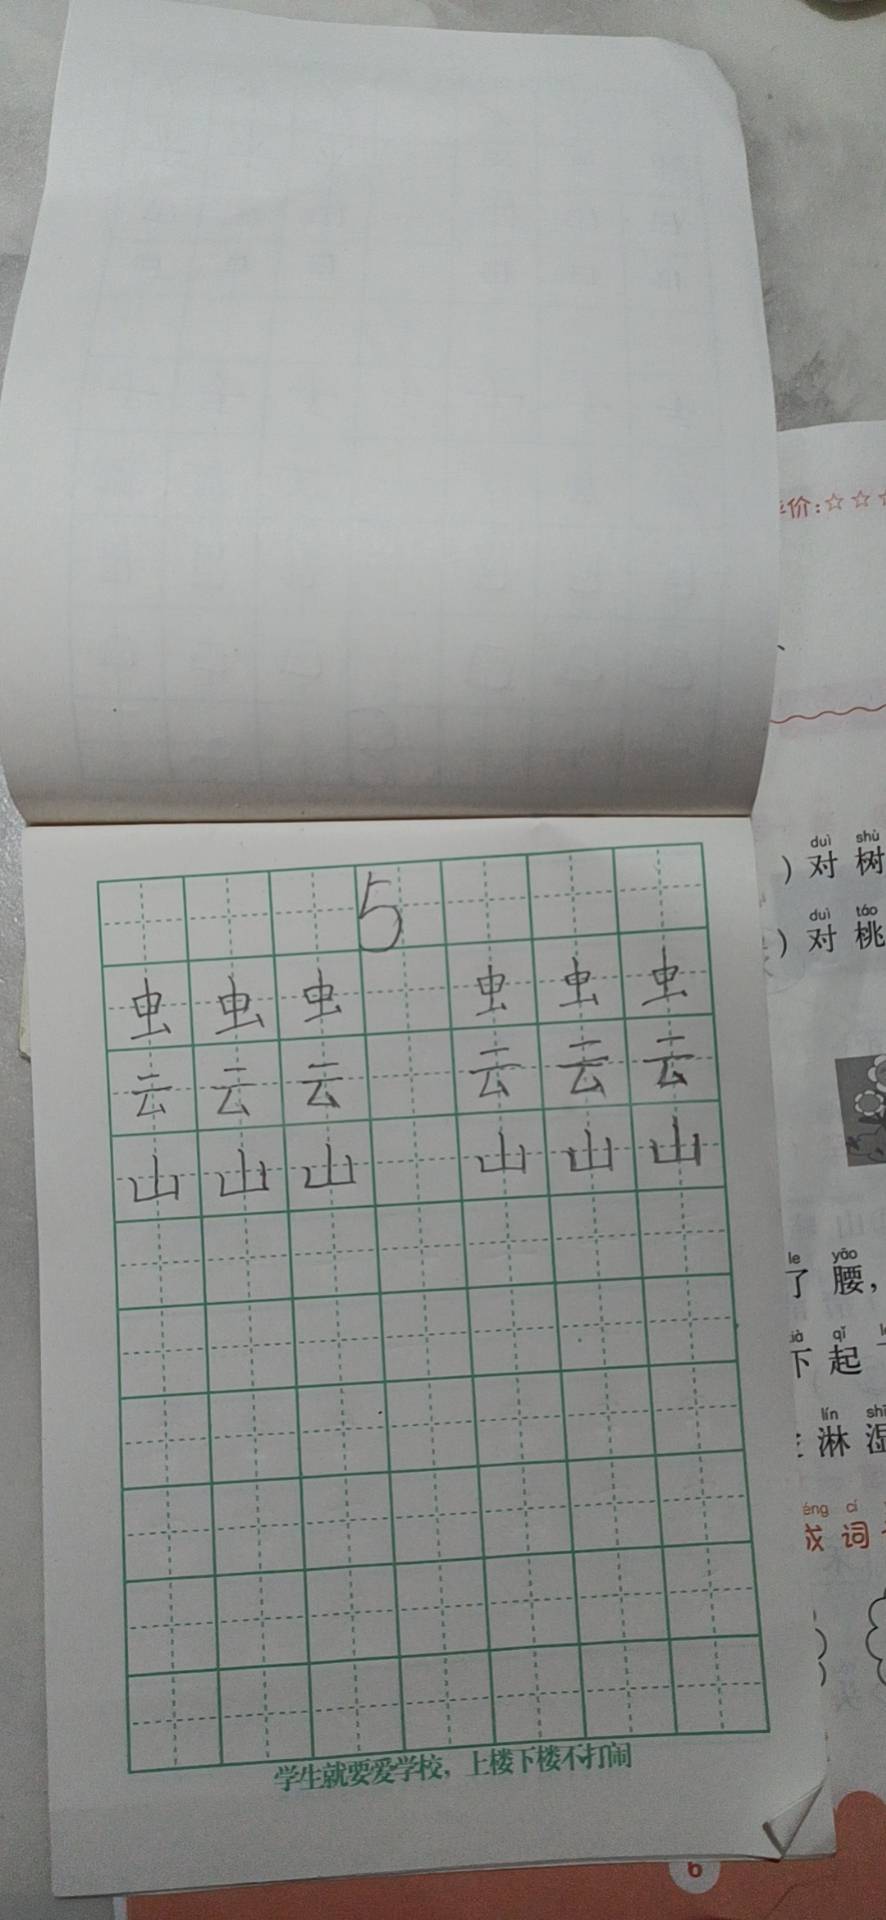 5
虫 虫 虫 虫 虫 虫
云 云 云 云 云 云
山 山 山 山 山 山
学生就要爱学校，上楼下楼不打闹
价：☆☆
duì shù
）对 树
duì táo
）对 桃
le yāo
了 腰，
qǐ
下 起
lín
淋 湿
cí
成 词
6